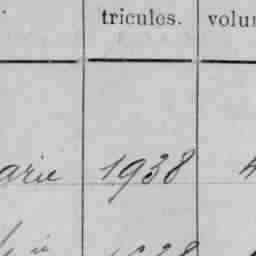 tricules. volu
arie 1938 4